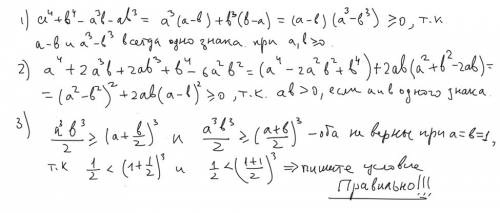 1) a⁴+b⁴-a³b-ab³ = a³(a-b)+b³(b-a) = (a-b)(a³-b³) ≥ 0, т.к.
a-b и a³-b³ всегда одного знака при a,b>0.
2) a⁴+2a³b+2ab³+b⁴-6a²b² = (a⁴-2a²b²+b⁴)+2ab(a²+b²-2ab) =
= (a²-b²)²+2ab(a-b)² ≥ 0, т.к. ab>0, если a и b одного знака.
3) a³b³/2 ≥ (a+b/2)³ и a³b³/2 ≥ ((a+b)/2)³ – оба не верны при a=b=1,
т.к 1/2 < (1+1/2)³ и 1/2 < ((1+1)/2)³ ⇒ пишите условие
Правильно!!!